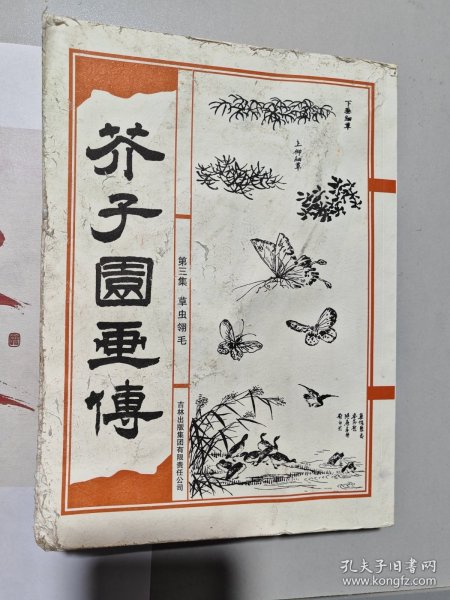 芥子園画傳
第三集 草虫翎毛
吉林出版集团有限责任公司
下垂細草
上仰細草
孔夫子旧书网
www.kongfz.com